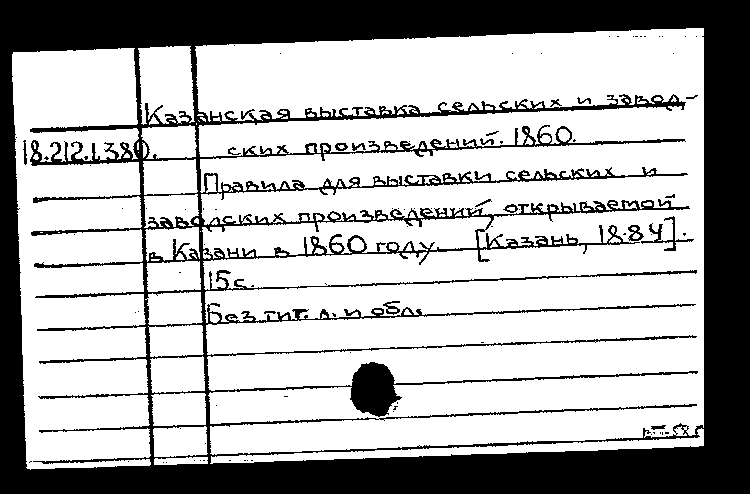 Казанская выставка сельских и завод-
18.212.1.380. ских произведений. 1860.
Правила для выставки сельских и
заводских произведений, открываемой
в Казани в 1860 году. [Казань, 18.84].
15с.
Без тит. л. и обл.